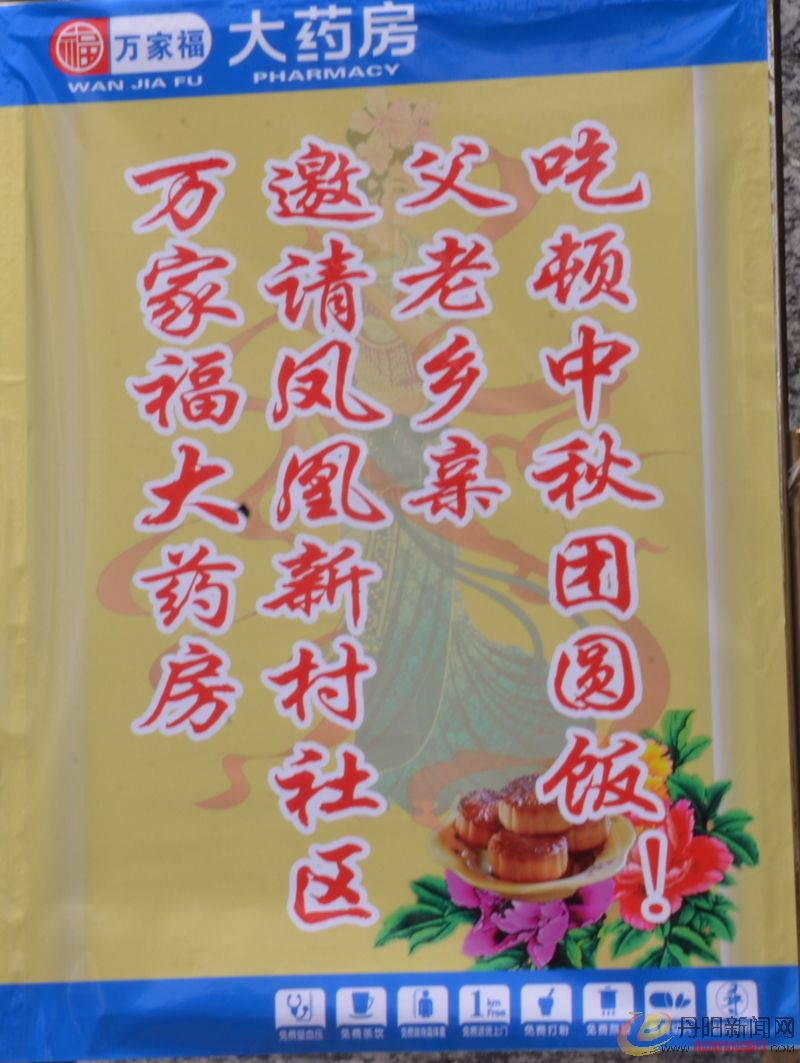 福 万家福 大药房
WAN JIA FU PHARMACY
万家福大药房
邀请凤凰新村社区
父老乡亲
吃顿中秋团圆饭！
1 km Free
免费量血压 免费茶饮 免费送药上门 免费打粉
丹阳新闻网